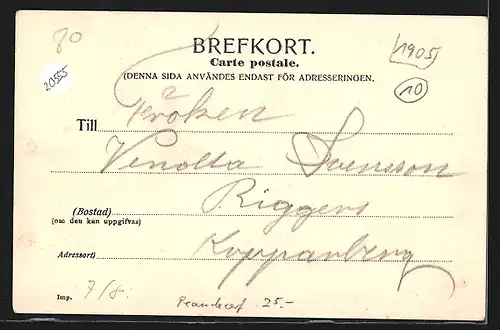 80
20555
BREFKORT.
Carte postale.
(DENNA SIDA ANVÄNDES ENDAST FÖR ADRESSERINGEN.
(1905)
10
Till Fröken
Svensson
Riggers
(Bostad)
(om den kan uppgifvas)
Kopparberg
Adressort)
Imp. 7/8. 25.-